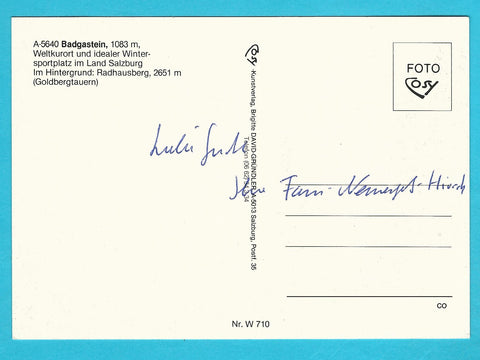 A-5640 Badgastein, 1083 m,
Weltkurort und idealer Winter-
sportplatz im Land Salzburg
Im Hintergrund: Radhausberg, 2651 m
(Goldbergtauern)
FOTO
Cosy
Cosy -Kunstverlag, Brigitte DAVID-GRÜNDLER, A-5013 Salzburg, Postf. 35
Telefon (06 62)
Ihre Fam.
CO
Nr. W 710